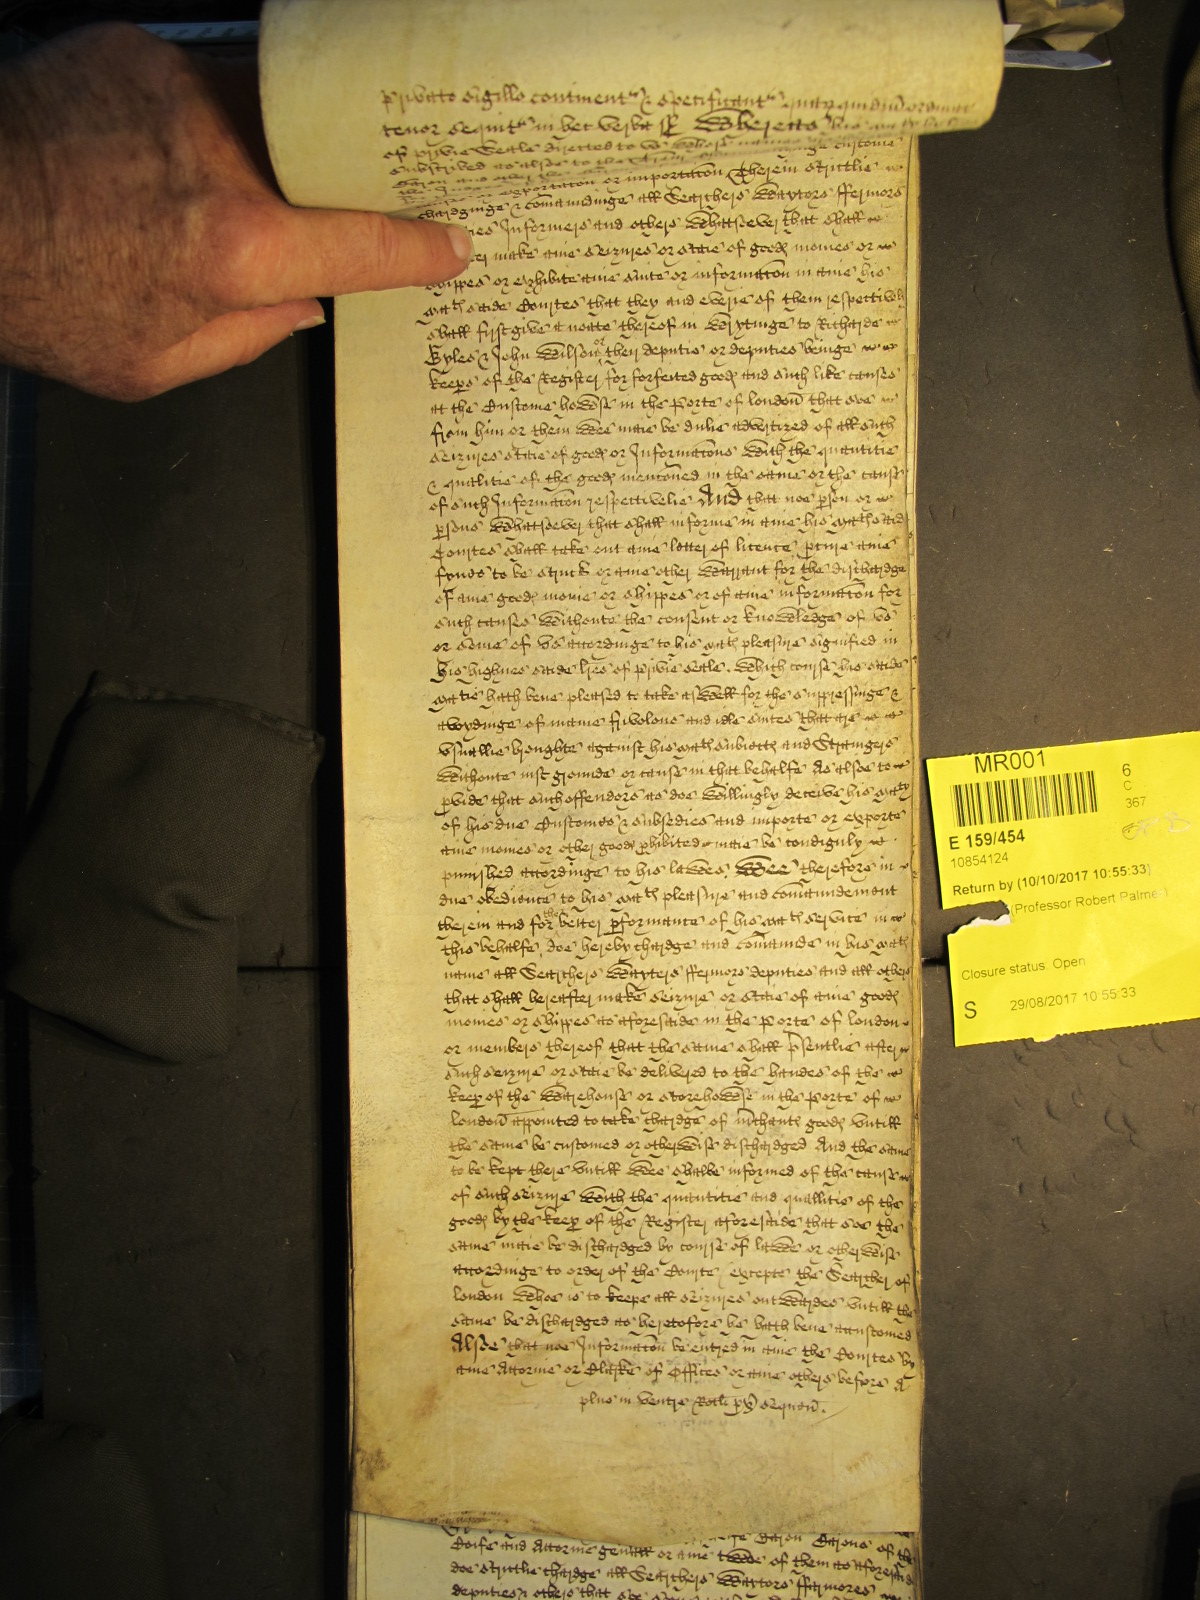 privato sigillo continent(ur) & specificant(ur)
tenor sequit(ur) in hec verba ss Whereas his
of privie Seale directed to us whose names
subscribed as alsoe to the
exportacon or importacon Therein strictlie
chardginge & comaundinge all Searchers Waytors ffermors
Informers and others whatsoever that shall
make anie seizures or staie of goods monies or
shippes or exhibite anie suite or informacon in anie his
Mats saide Courtes that they and everie of them respectively
shall first give a noate thereof in wrytinge to Richarde
Byles & John Wilson or their deputie or deputies beinge
keeps of the Register for forfeited goods and such like causes
at the Custome howse in the Porte of London that soe
from him or them wee maie be dulie advertized of all such
seizures staie of goods or Informacons with the quantitie
& qualitie of the goods mentioned in the same or the cause
of such Informacon respectivelie And that noe pson or
psons whatsoever that shall informe in anie his Mats said
Courtes shall take out anie letter of licence pcure anie
fynes to be struck or anie other warrant for the dischardge
of anie goods monie or shippes or of anie informacon for
such causes withoute the consent or knowledge of us
or some of us accordinge to his Mats pleasure signified in
his highnes saide lres of privie seale. Which course his saide
Matie hath bene pleased to take aswell for the suppressinge &
avoydinge of manie frivolous and idle suites that are
usuallie broughte against his Mats subiects and Strangers
withoute iust grounde or cause in that behalfe As alsoe to
pvide that such offendors as doe willingly deceive his Maty
of his due Customes & subsedies and importe or exporte
anie monies or other goods phibited maie be condignly
punished accordinge to his lawes, Wee therefore in
due obedience to his Mats pleasure and comaundement
therein and for the better pformance of his Mats service in
this behalfe, doe hereby chardge and comaunde in his Mats
name all Searchers Wayters ffermors deputies and all others
that shall hereafter make seizure or staie of anie goods
monies or shippes as aforesaide in the Porte of London
or members thereof that the same shall psentlie after
such seizure or staie be delivered to the handes of the
keep of the warehouse or storehowse in the Porte of
London appointed to take chardge of mchants goods untill
the same be customed or otherwise dischardged And the same
to be kept there untill wee shalbe informed of the cause
of such seizure with the quantitie and quallitie of the
goods by the keep of the Register aforesaide that soe the
same maie be dischardged by course of lawe or otherwise
accordinge to order of the Courte, excepte the Searcher of
London whoe is to keepe all seizures outwardes untill the
same be dischardged as heretofore he hath bene accustomed
Alsoe that noe Informacon be entred in anie the Courtes by
anie Attornie or Clarke of Offices or anie others before A
plus in ventre Rotli px sequen.
Baron Barons of the
Coife and Attorne gen'all or anie twoe of them as aforesaid
doe strictlie chardge all Searchers Waytors ffarmores
deputies & others that
MR001
6
C
367
E 159/454
10854124
Return by (10/10/2017 10:55:33)
(Professor Robert Palmer)
Closure status: Open
S 29/08/2017 10:55:33